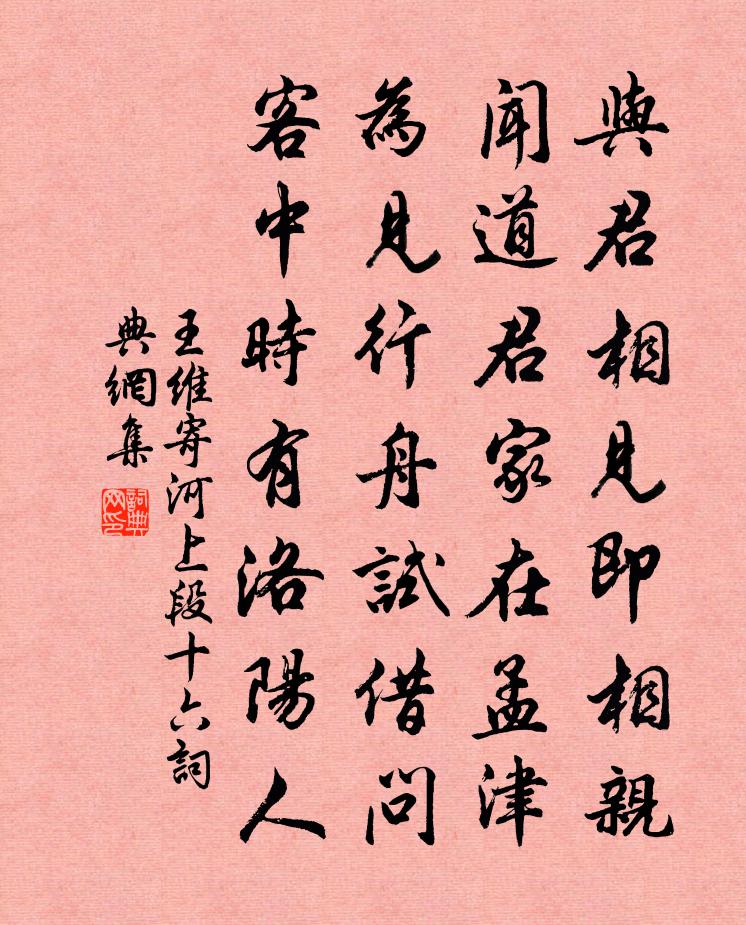 與君相見即相親
聞道君家在孟津
為見行舟試借問
客中時有洛陽人
王維寄河上段十六詞
典網集
詞典網印